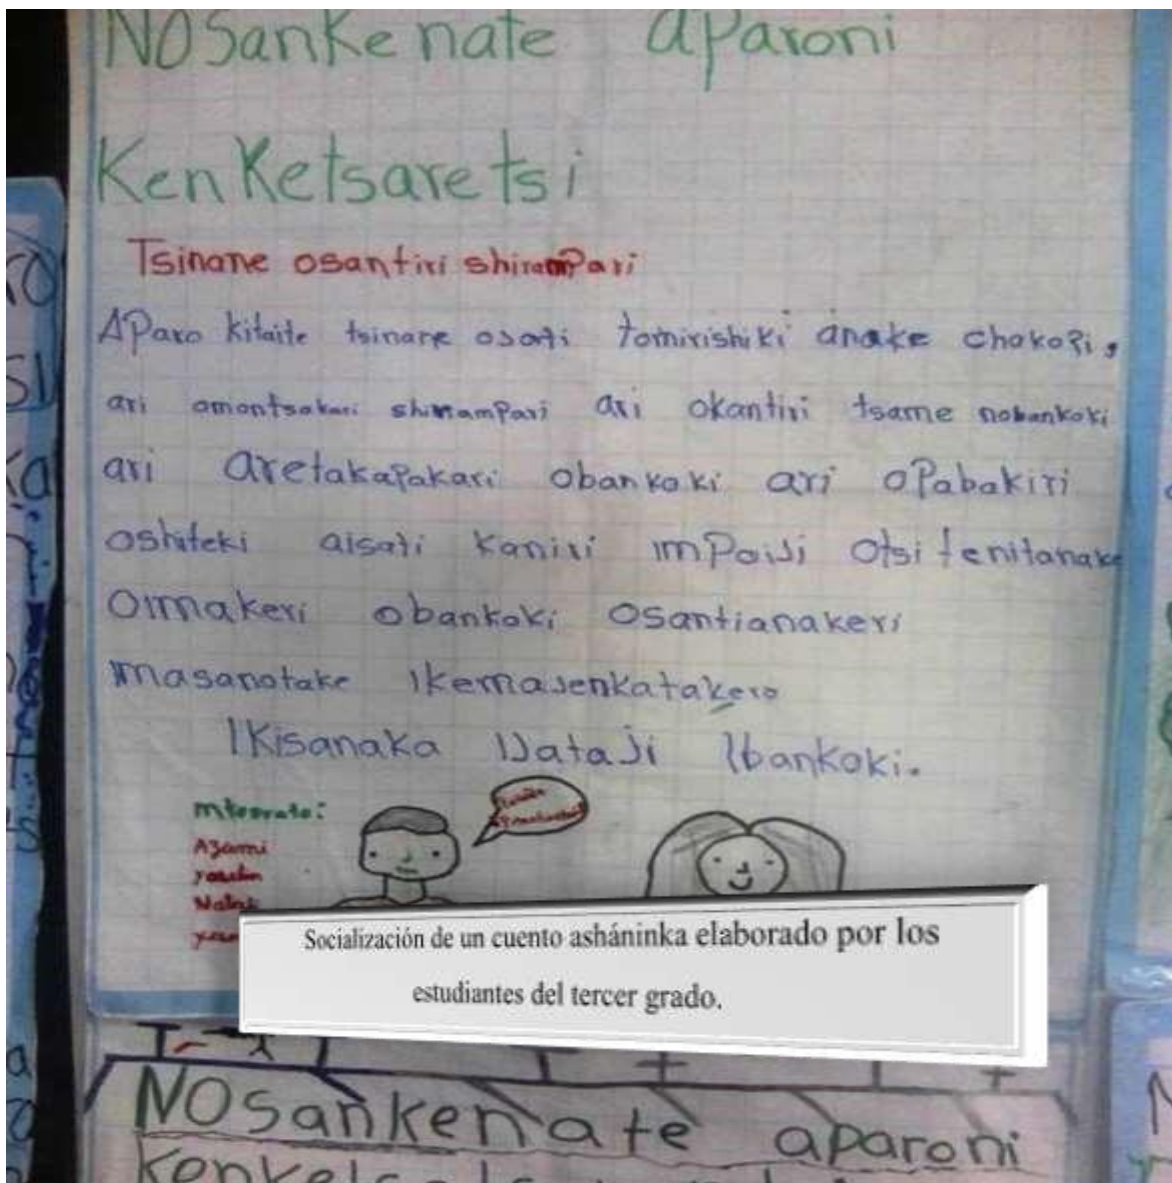 Nosankenate aparoni
Kenketsaretsi
Tsinane osantiri shirampari
Aparo kitaite tsinane osati tomirishiki anake chakopi,
ari omontsakari shirampari ari okantiri tsame nobankoki
ari aretakapakari obankoki ari opabakiri
oshiteki aisati kaniri impoiji otsitenitanake
Oimakeri obankoki osantianakeri
imasanotake ikemasenkatakero
Ikisanaka Ijataji Ibankoki.
Azumi
Socialización de un cuento asháninka elaborado por los
estudiantes del tercer grado.
NOsankenate aparoni